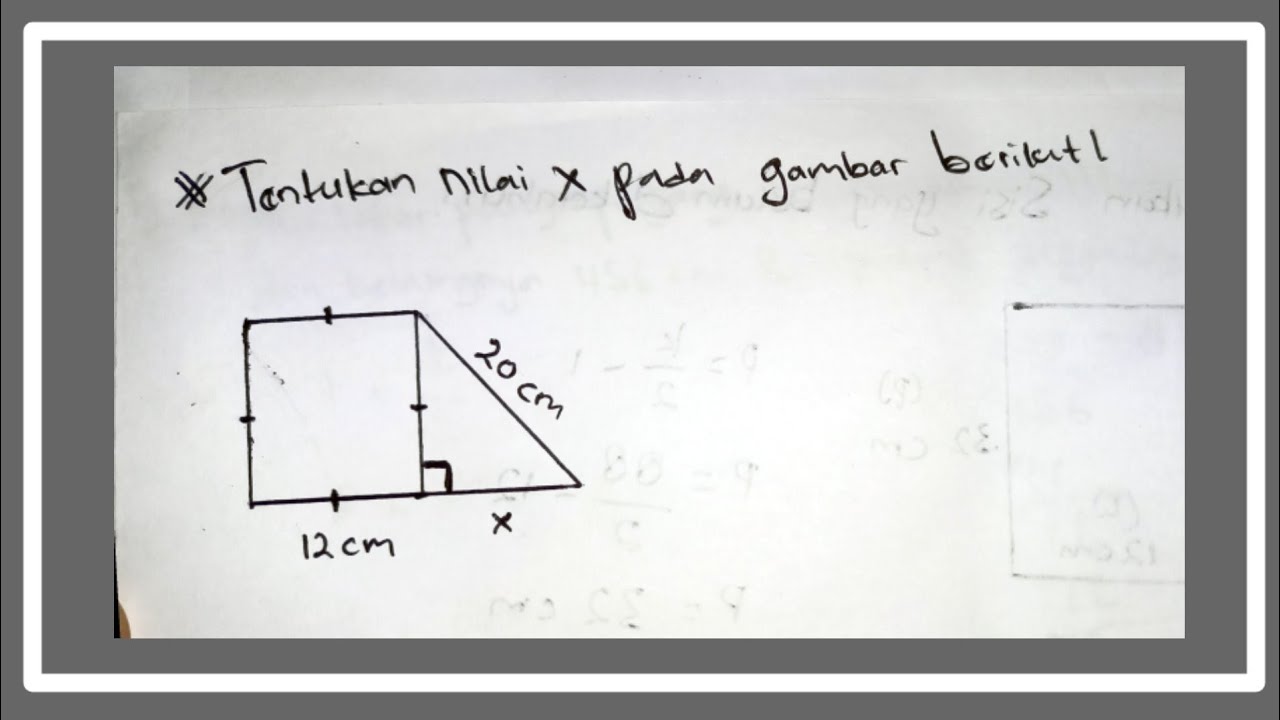 * Tentukan nilai x pada gambar berikut!
20 cm
12 cm
x